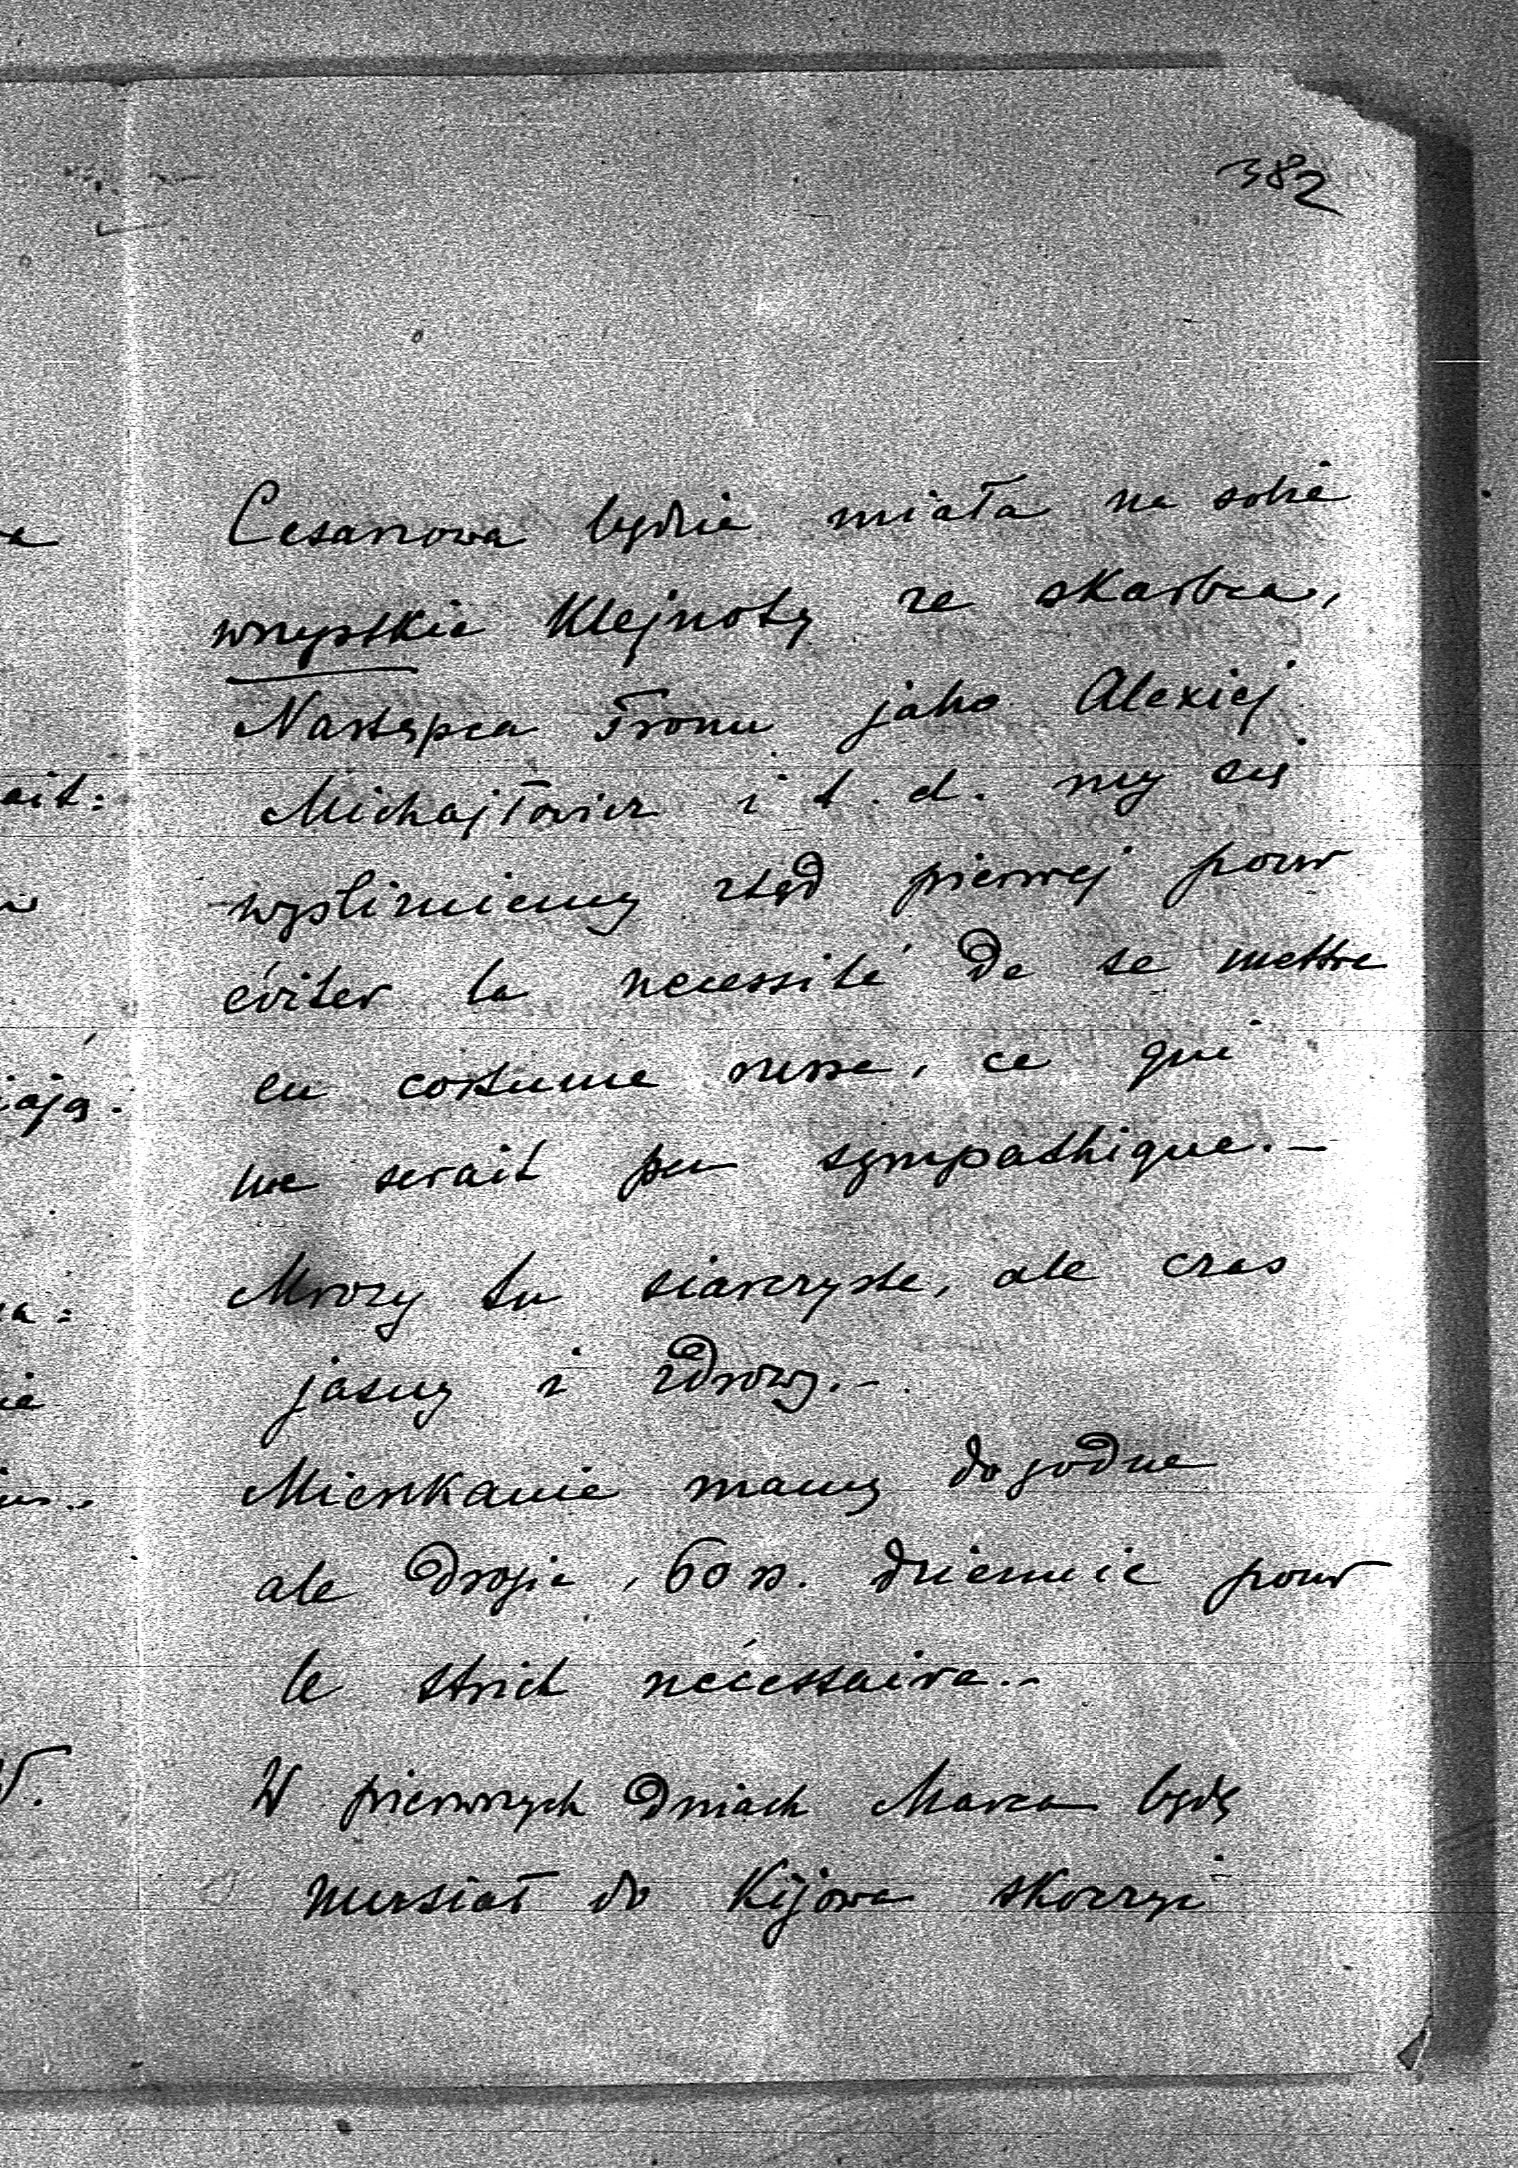 382
Cesarzowa będzie miała na sobie
wszystkie Klejnoty ze skarbca,
Następca Tronu jako Alexiej
Michajłowicz i t. d. my się
wyślizniemy ztąd pierwej pour
éviter la necessité de se mettre
en costume russe, ce qui
me serait peu sympathique. –
Mrozy tu siarczyste, ale czas
jasny i zdrowy. –
Mieszkanie mamy dogodne
ale drogie, 60 rs. dziennie pour
le strict nécessaire. –
W pierwszych dniach Marca będę
musiał do Kijowa skoczyć